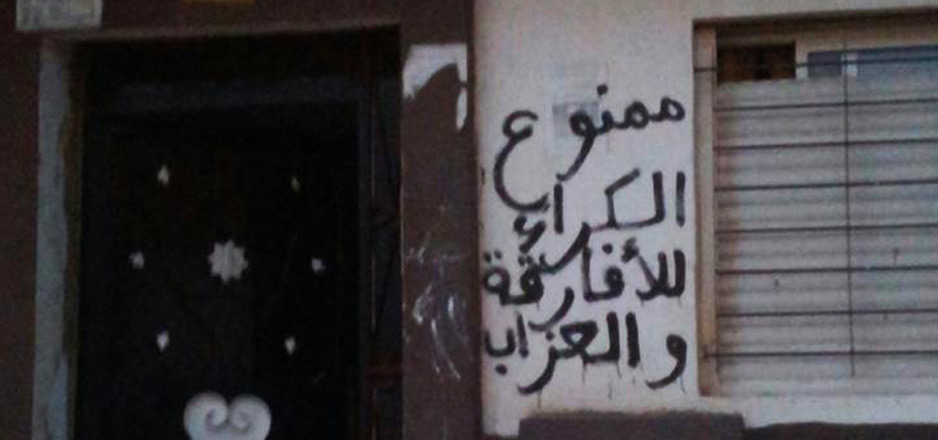 ممنوع
الكرائ
للأفارقة
و العزاب